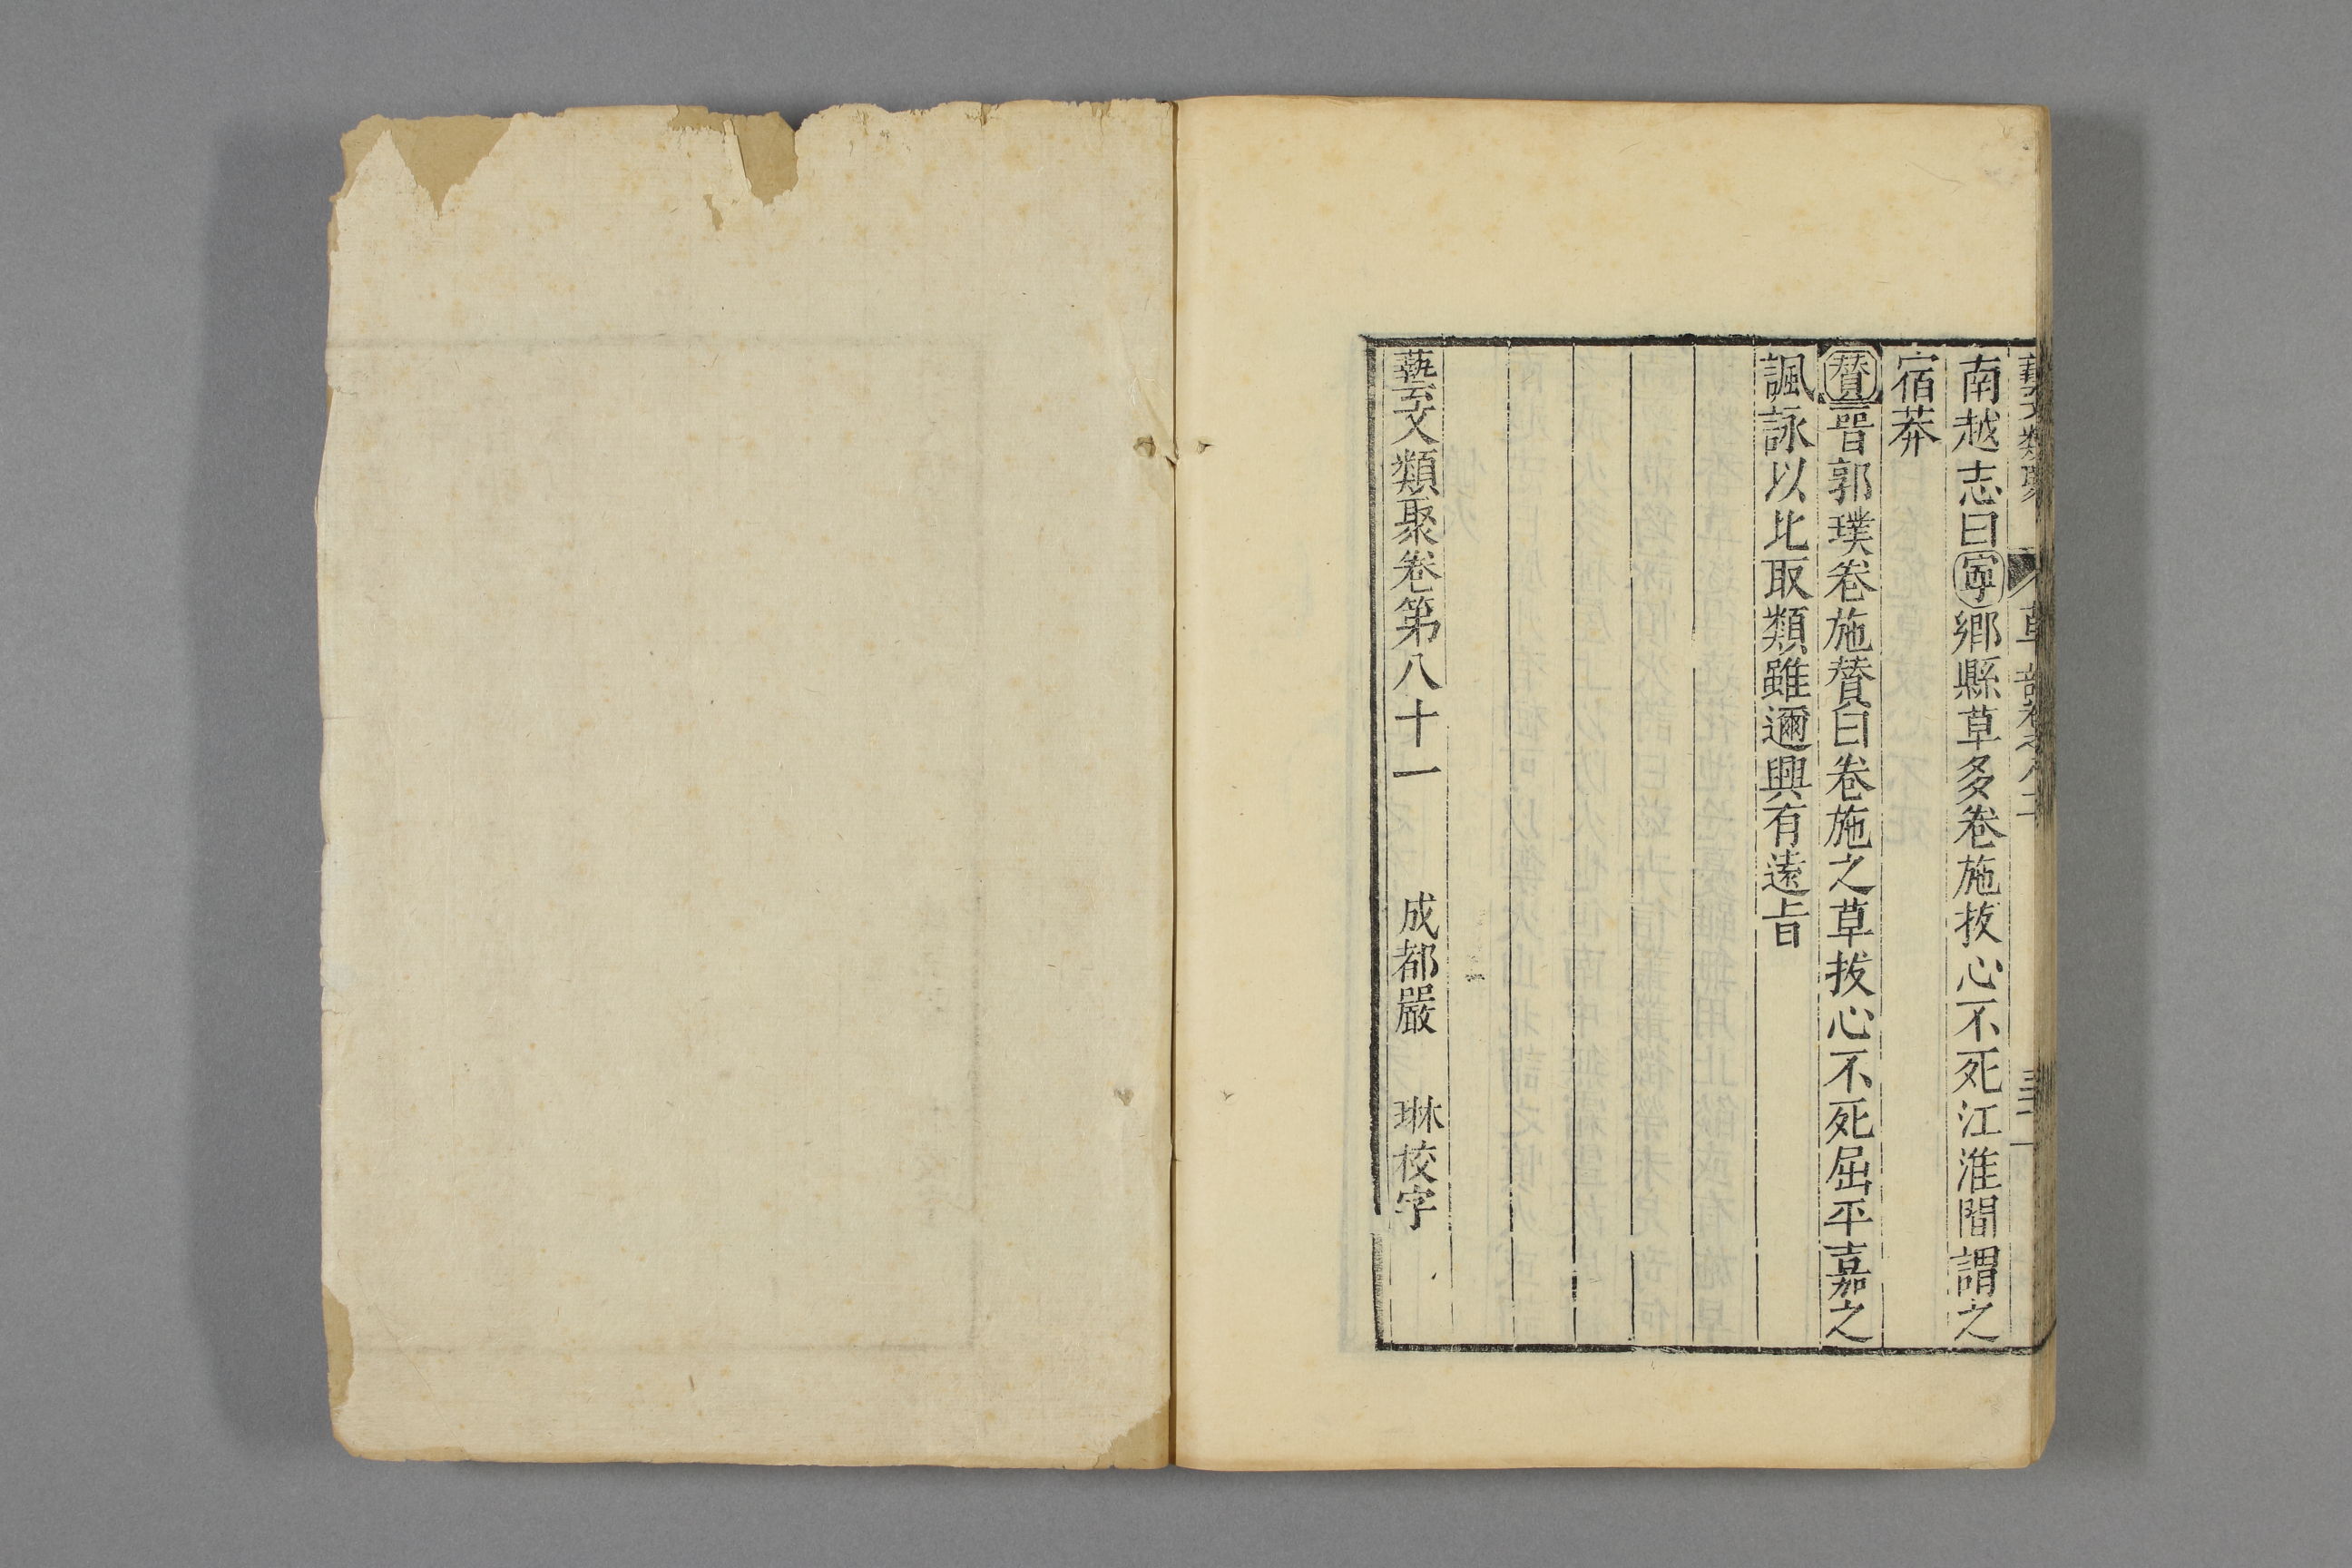 藝文類聚 草部卷八十一 三十一
南越志曰寧鄉縣草多卷施拔心不死江淮間謂之
宿莽
贊晉郭璞卷施贊曰卷施之草拔心不死屈平嘉之
諷詠以比取類雖邇興有遠旨
藝文類聚卷第八十一 成都嚴 琳校字